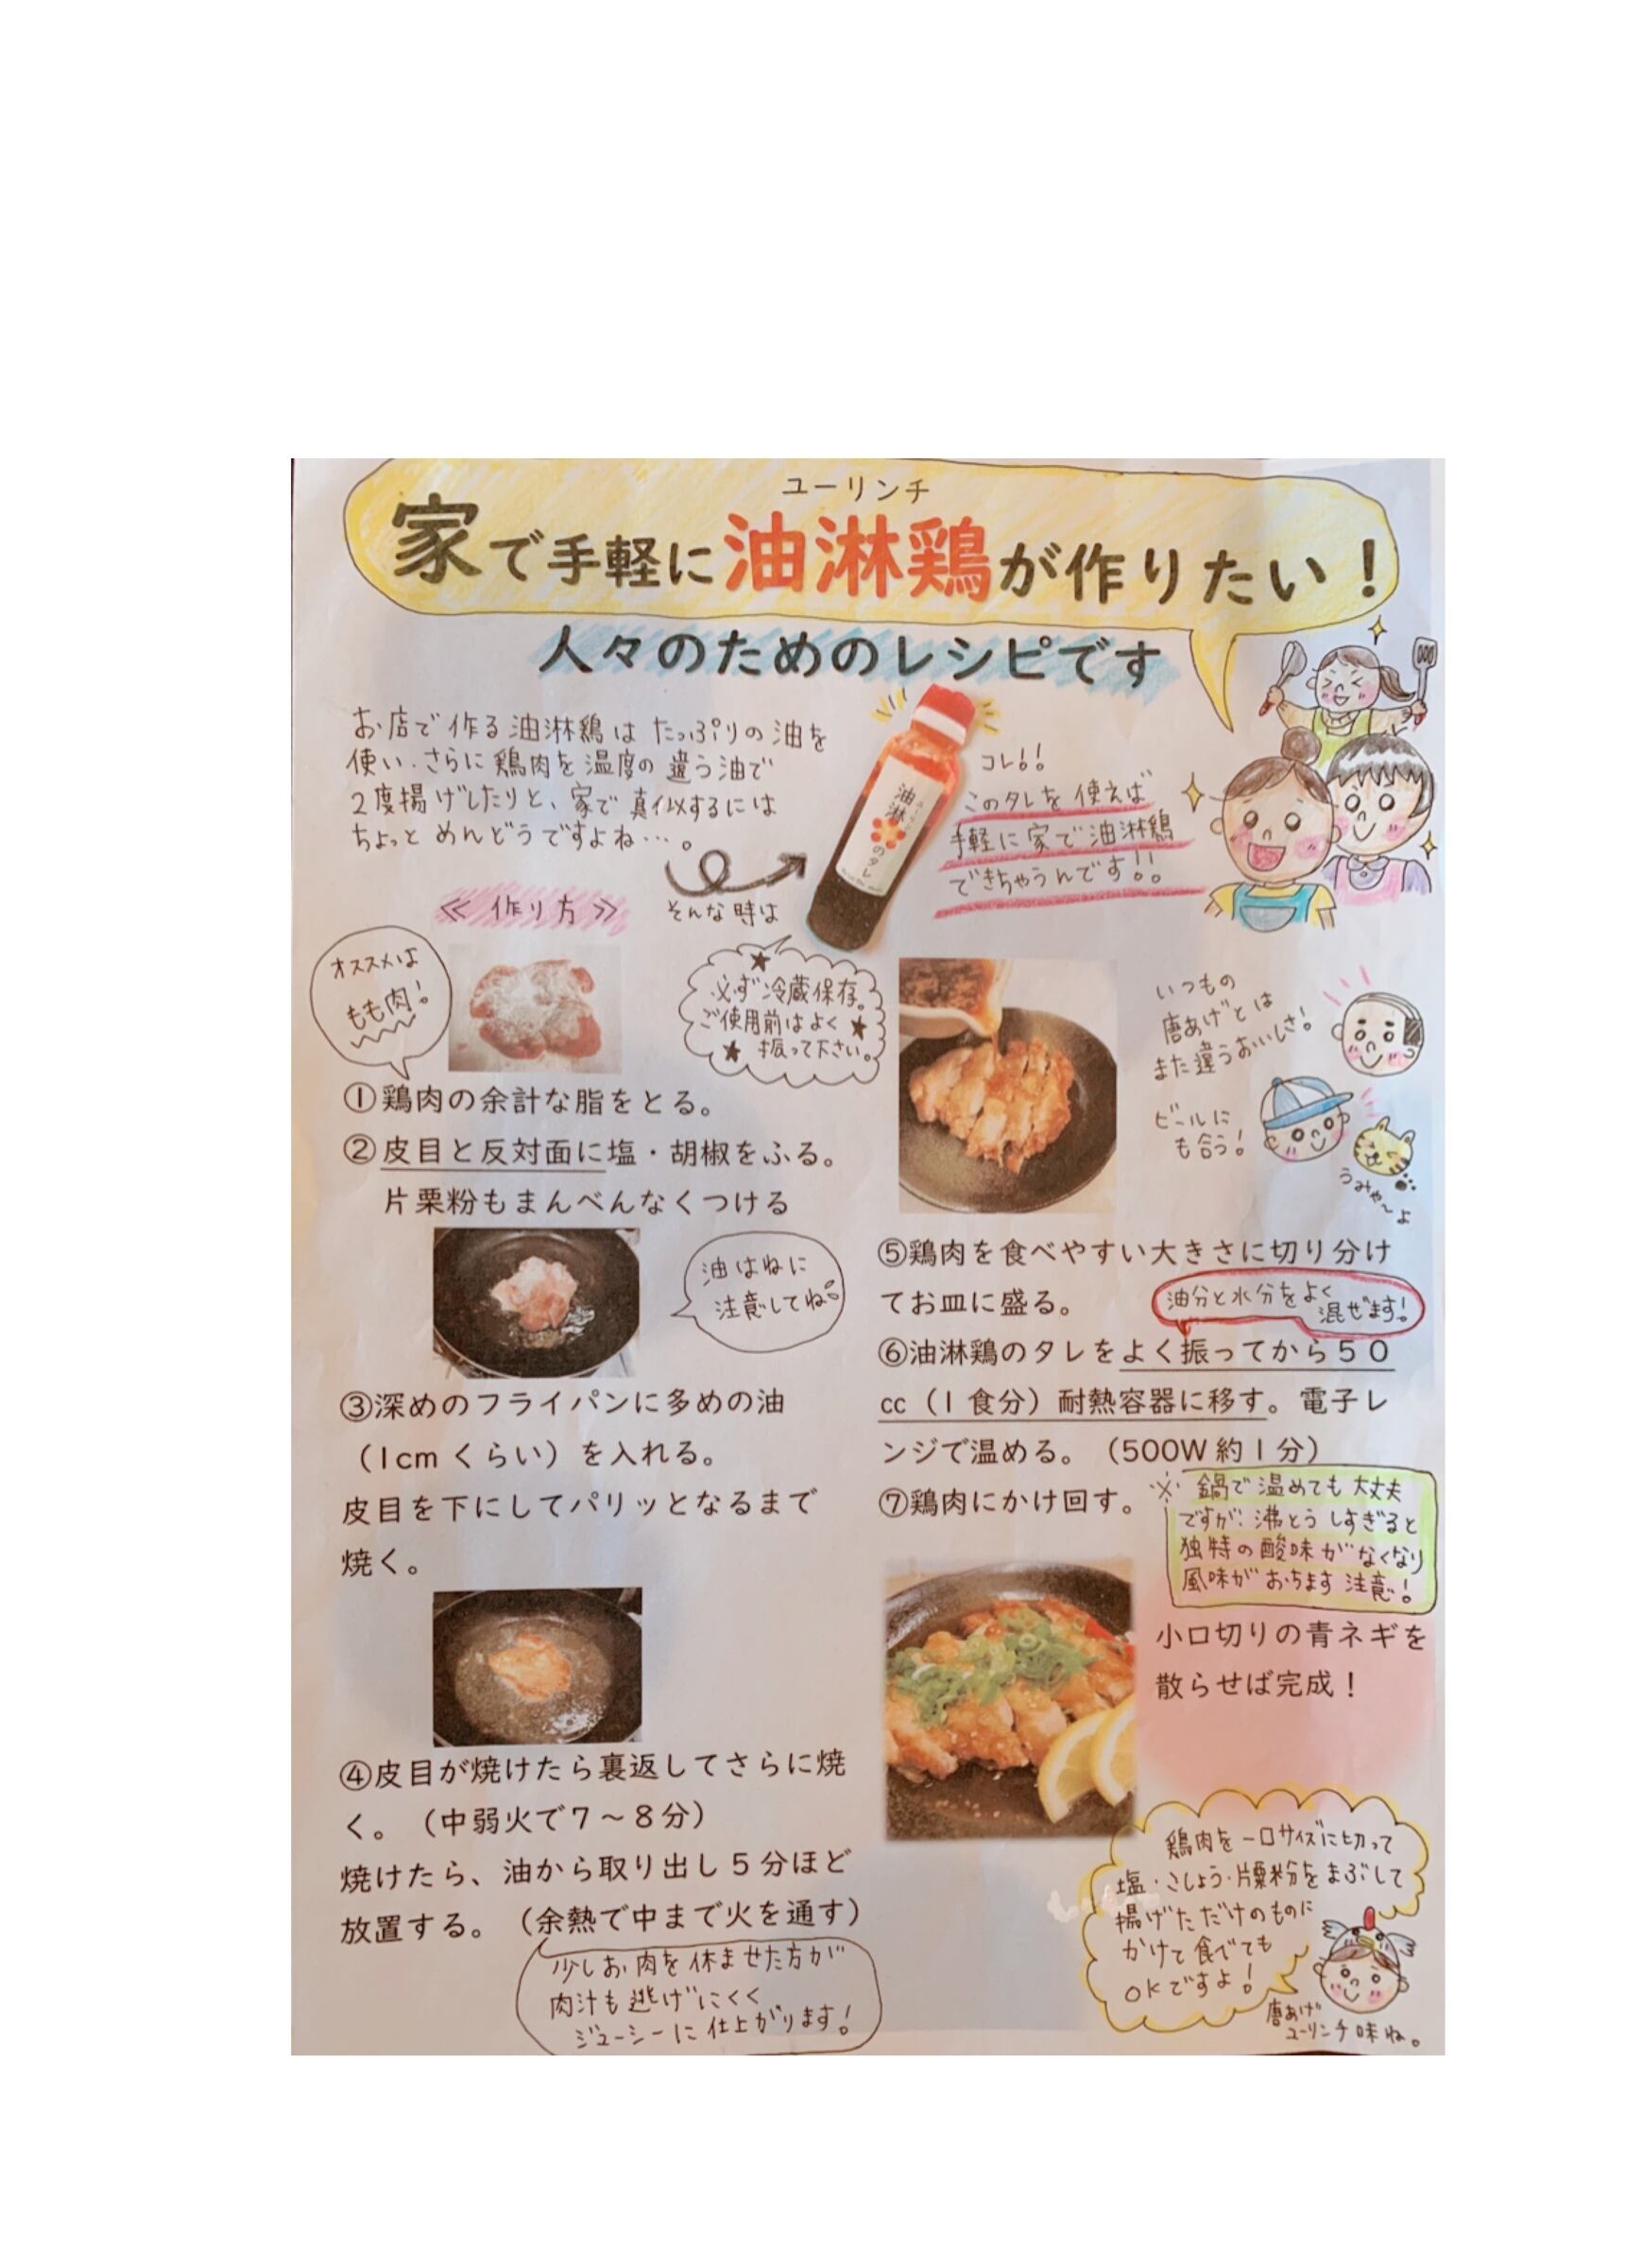 ユーリンチ
家で手軽に油淋鶏が作りたい！
人々のためのレシピです
お店で作る油淋鶏はたっぷりの油を
使い、さらに鶏肉を温度の違う油で
2度揚げしたりと、家で真似するには
ちょっとめんどうですよね…。
そんな時は
油淋
のタレ
コレ!!
このタレを使えば
手軽に家で油淋鶏
できちゃうんです!!
≪作り方≫
オススメは
もも肉!
★
必ず冷蔵保存。
ご使用前はよく★
★振って下さい。
①鶏肉の余計な脂をとる。
②皮目と反対面に塩・胡椒をふる。
片栗粉もまんべんなくつける
油はねに
注意してね
③深めのフライパンに多めの油
（1cmくらい）を入れる。
皮目を下にしてパリッとなるまで
焼く。
④皮目が焼けたら裏返してさらに焼
く。（中弱火で７～８分）
焼けたら、油から取り出し５分ほど
放置する。（余熱で中まで火を通す）
少しお肉を休ませた方が
肉汁も逃げにくく
ジューシーに仕上がります!
いつもの
唐あげとは
また違うおいしさ!
ビールに
も合う!
うみゃ～よ
⑤鶏肉を食べやすい大きさに切り分け
てお皿に盛る。
油分と水分をよく
混ぜます!
⑥油淋鶏のタレをよく振ってから５０
cc（１食分）耐熱容器に移す。電子レ
ンジで温める。（500W約１分）
⑦鶏肉にかけ回す。
※鍋で温めても大丈夫
ですが、沸とうしすぎると
独特の酸味がなくなり
風味がおちます 注意!
小口切りの青ネギを
散らせば完成！
鶏肉を一口サイズに切って
塩・こしょう・片栗粉をまぶして
揚げただけのものに
かけて食べても
OKですよ!
唐あげ
ユーリンチ味ね。